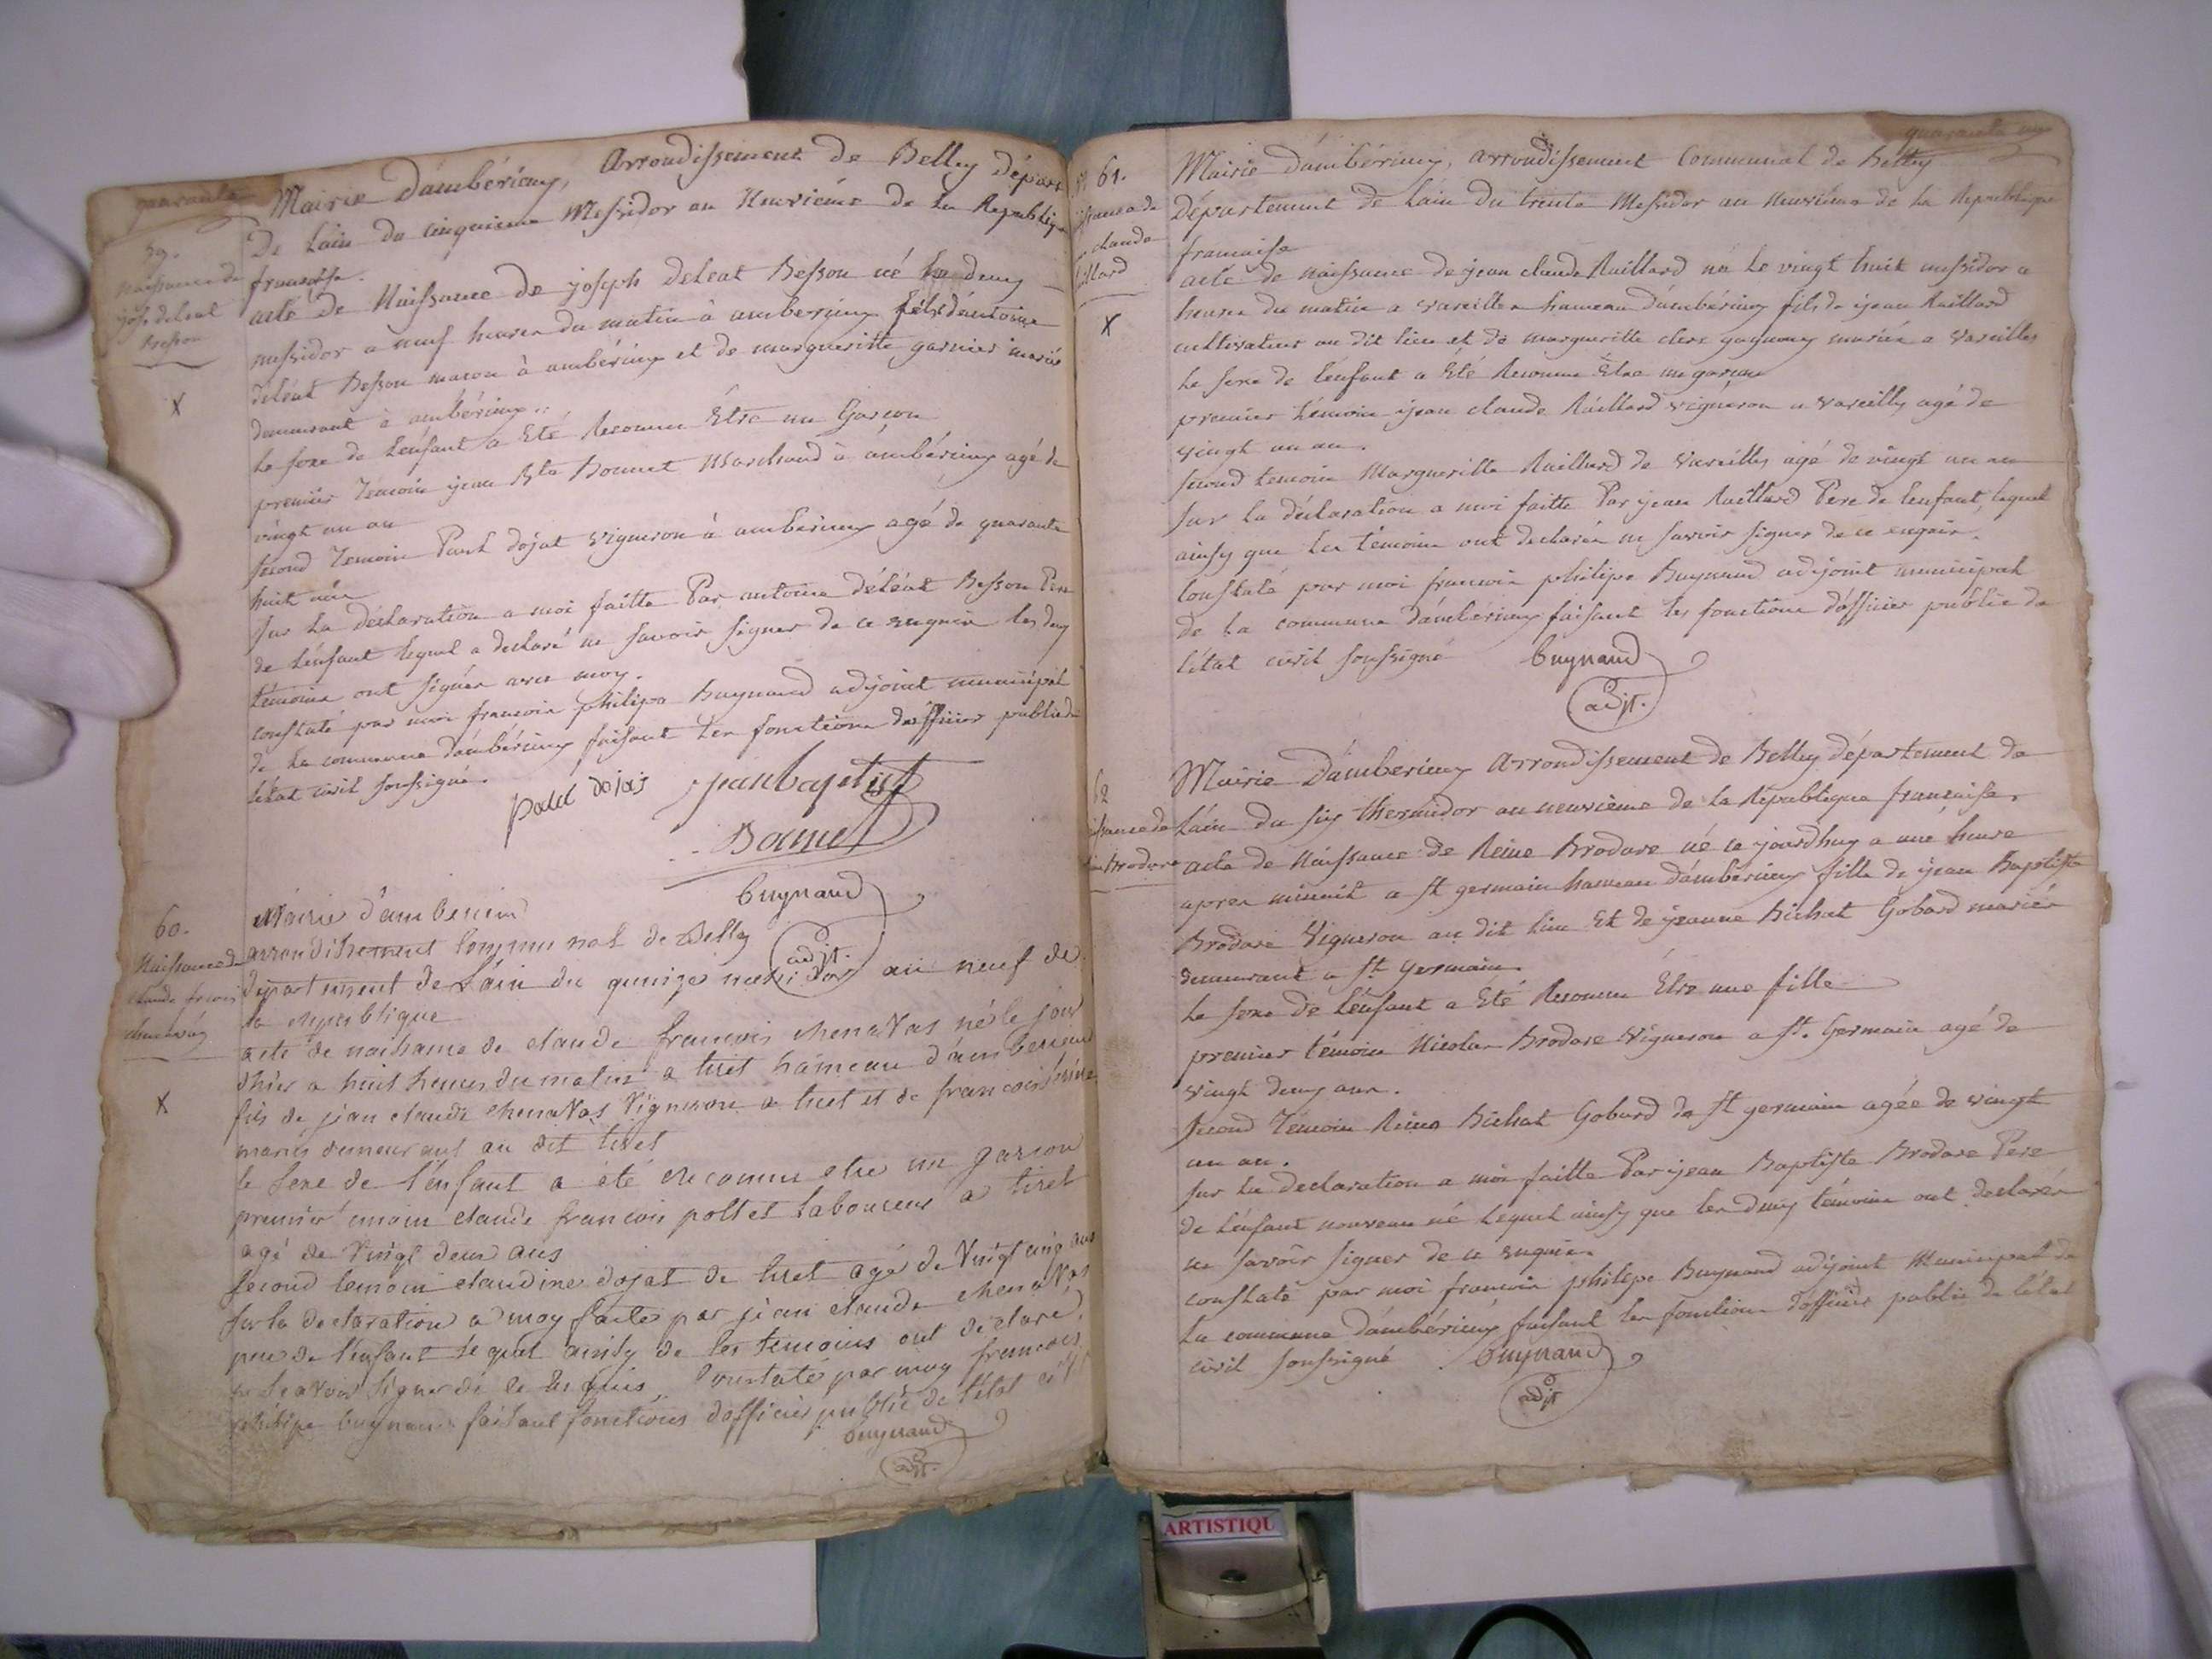 quarante
59.
Naissance de
josh deleat
Besson
X
Mairie D'ambérieux, Arrondissement de Belley Dépar
De Lain du cinquieme Messidor an Neuvième de La Republique
francaise.
acte de Naissance de joseph deleat Besson né le deux
messidor a neuf heures du matin à amberieux fils d'antoine
déléat Besson macon à ambérieux et de margueritte garnier mariés
demeurant à ambérieux.
Le sexe de Lenfant a Eté Reconnu Etre un Garcon
premier Témoin jean Bte Bonnet Marchand à ambérieux agé de
vingt un an
second Temoin Paul dojat vigneron à amberieux agé de quarante
huit ans
sur La déclaration a moi faitte Par antoine déléat Besson Pere
de Lenfant lequel a declaré ne savoir signer de ce enquis les deux
témoins ont signés avec moy.
constaté par moi francois philipe buynand adjoint municipal
de La commune d'ambérieux faisant Les fonctions d'officier public de
L'état civil soussigné.
paul dojas jeanbaptist
Bonnet
buynand
adjt.
60.
Naissance de
claude francois
chenavas
X
Mairie d'amberieux
arrondissement Communal de Belley
departement de L'ain du quinze messidor an neuf de
la republique
acte de naissance de claude francois chenavas né le jour
d'hier a huit heures du matin a tiret hameau d'amberieux
fils de jean claude chenavas Vigneron a tiret et de francoise
mariés demeurant au dit tiret
le sexe de l'enfant a été reconnu etre un garcon
premier temoin claude francois pollet laboureur a tiret
agé de Vingt deux ans
second temoin claudine dojat de tiret agé de Vingt cinq ans
sur la declaration a moy faite par jean claude chenavas
pere de l'enfant lequel ainsy de les temoins ont déclaré
ne scavoir signer de ce requis. Constaté par moy francois
philipe buynand faisant fonctions d'officier public de l'état civil
buynand
adjt.
quarante un
61.
claude
X
Mairie d'ambérieux, arrondissement Communal de Belley
Département de Lain du trente Messidor an neuvième de La Republique
francaise
acte de naissance de jean claude Ruillard né Le vingt huit messidor a
heures du matin a vareilles hameau d'ambérieux fils de jean Ruillard
cultivateur au dit lieu et de margueritte clerc gagneux mariés a vareilles
Le sexe de Lenfant a Eté Reconnu Etre un garcon
premier témoin jean claude Ruillard vigneron a vareilles agé de
vingt un an.
second temoin Margueritte Ruillard de vareilles agé de vingt un an
sur La déclaration a moi faitte Par jean Ruillard Pere de Lenfant, lequel
ainsy que les témoins ont declarés ne savoir signer de ce enquis.
Constaté par moi francois philipe Buynand adjoint municipal
de La commune d'ambérieux faisant les fonctions d'officier public de
L'état civil soussigné buynand
adjt.
62
Mairie D'amberieux Arrondissement de Belley département de
Lain du six thermidor an neuvième de La République francaise.
acte de Naissance de Reine Brodare né ce jourdhuy a une heure
apres minuit a st germain hameau d'ambérieux fille de jean Baptiste
Brodare Vigneron au dit lieu Et de jeanne Bichat Gobard mariés
demeurant a st germain.
Le sexe de Lenfant a Eté Reconnu Etre une fille
premier témoin Nicolas Brodare vigneron a st. Germain agé de
vingt deux ans.
second Témoin Reine Bichat Gobard de st germain agée de vingt
un an.
sur La declaration a moi faitte Par jean Baptiste Brodare Pere
de Lenfant nouveau né Lequel ainsy que les deux témoins ont declarés
ne savoir signer de ce enquis.
constaté par moi francois philipe Buynand adjoint Municipal de
La commune d'ambérieux faisant Les fonctions d'officier public de Létat
civil soussigné buynand
adjt
ARTISTIQU